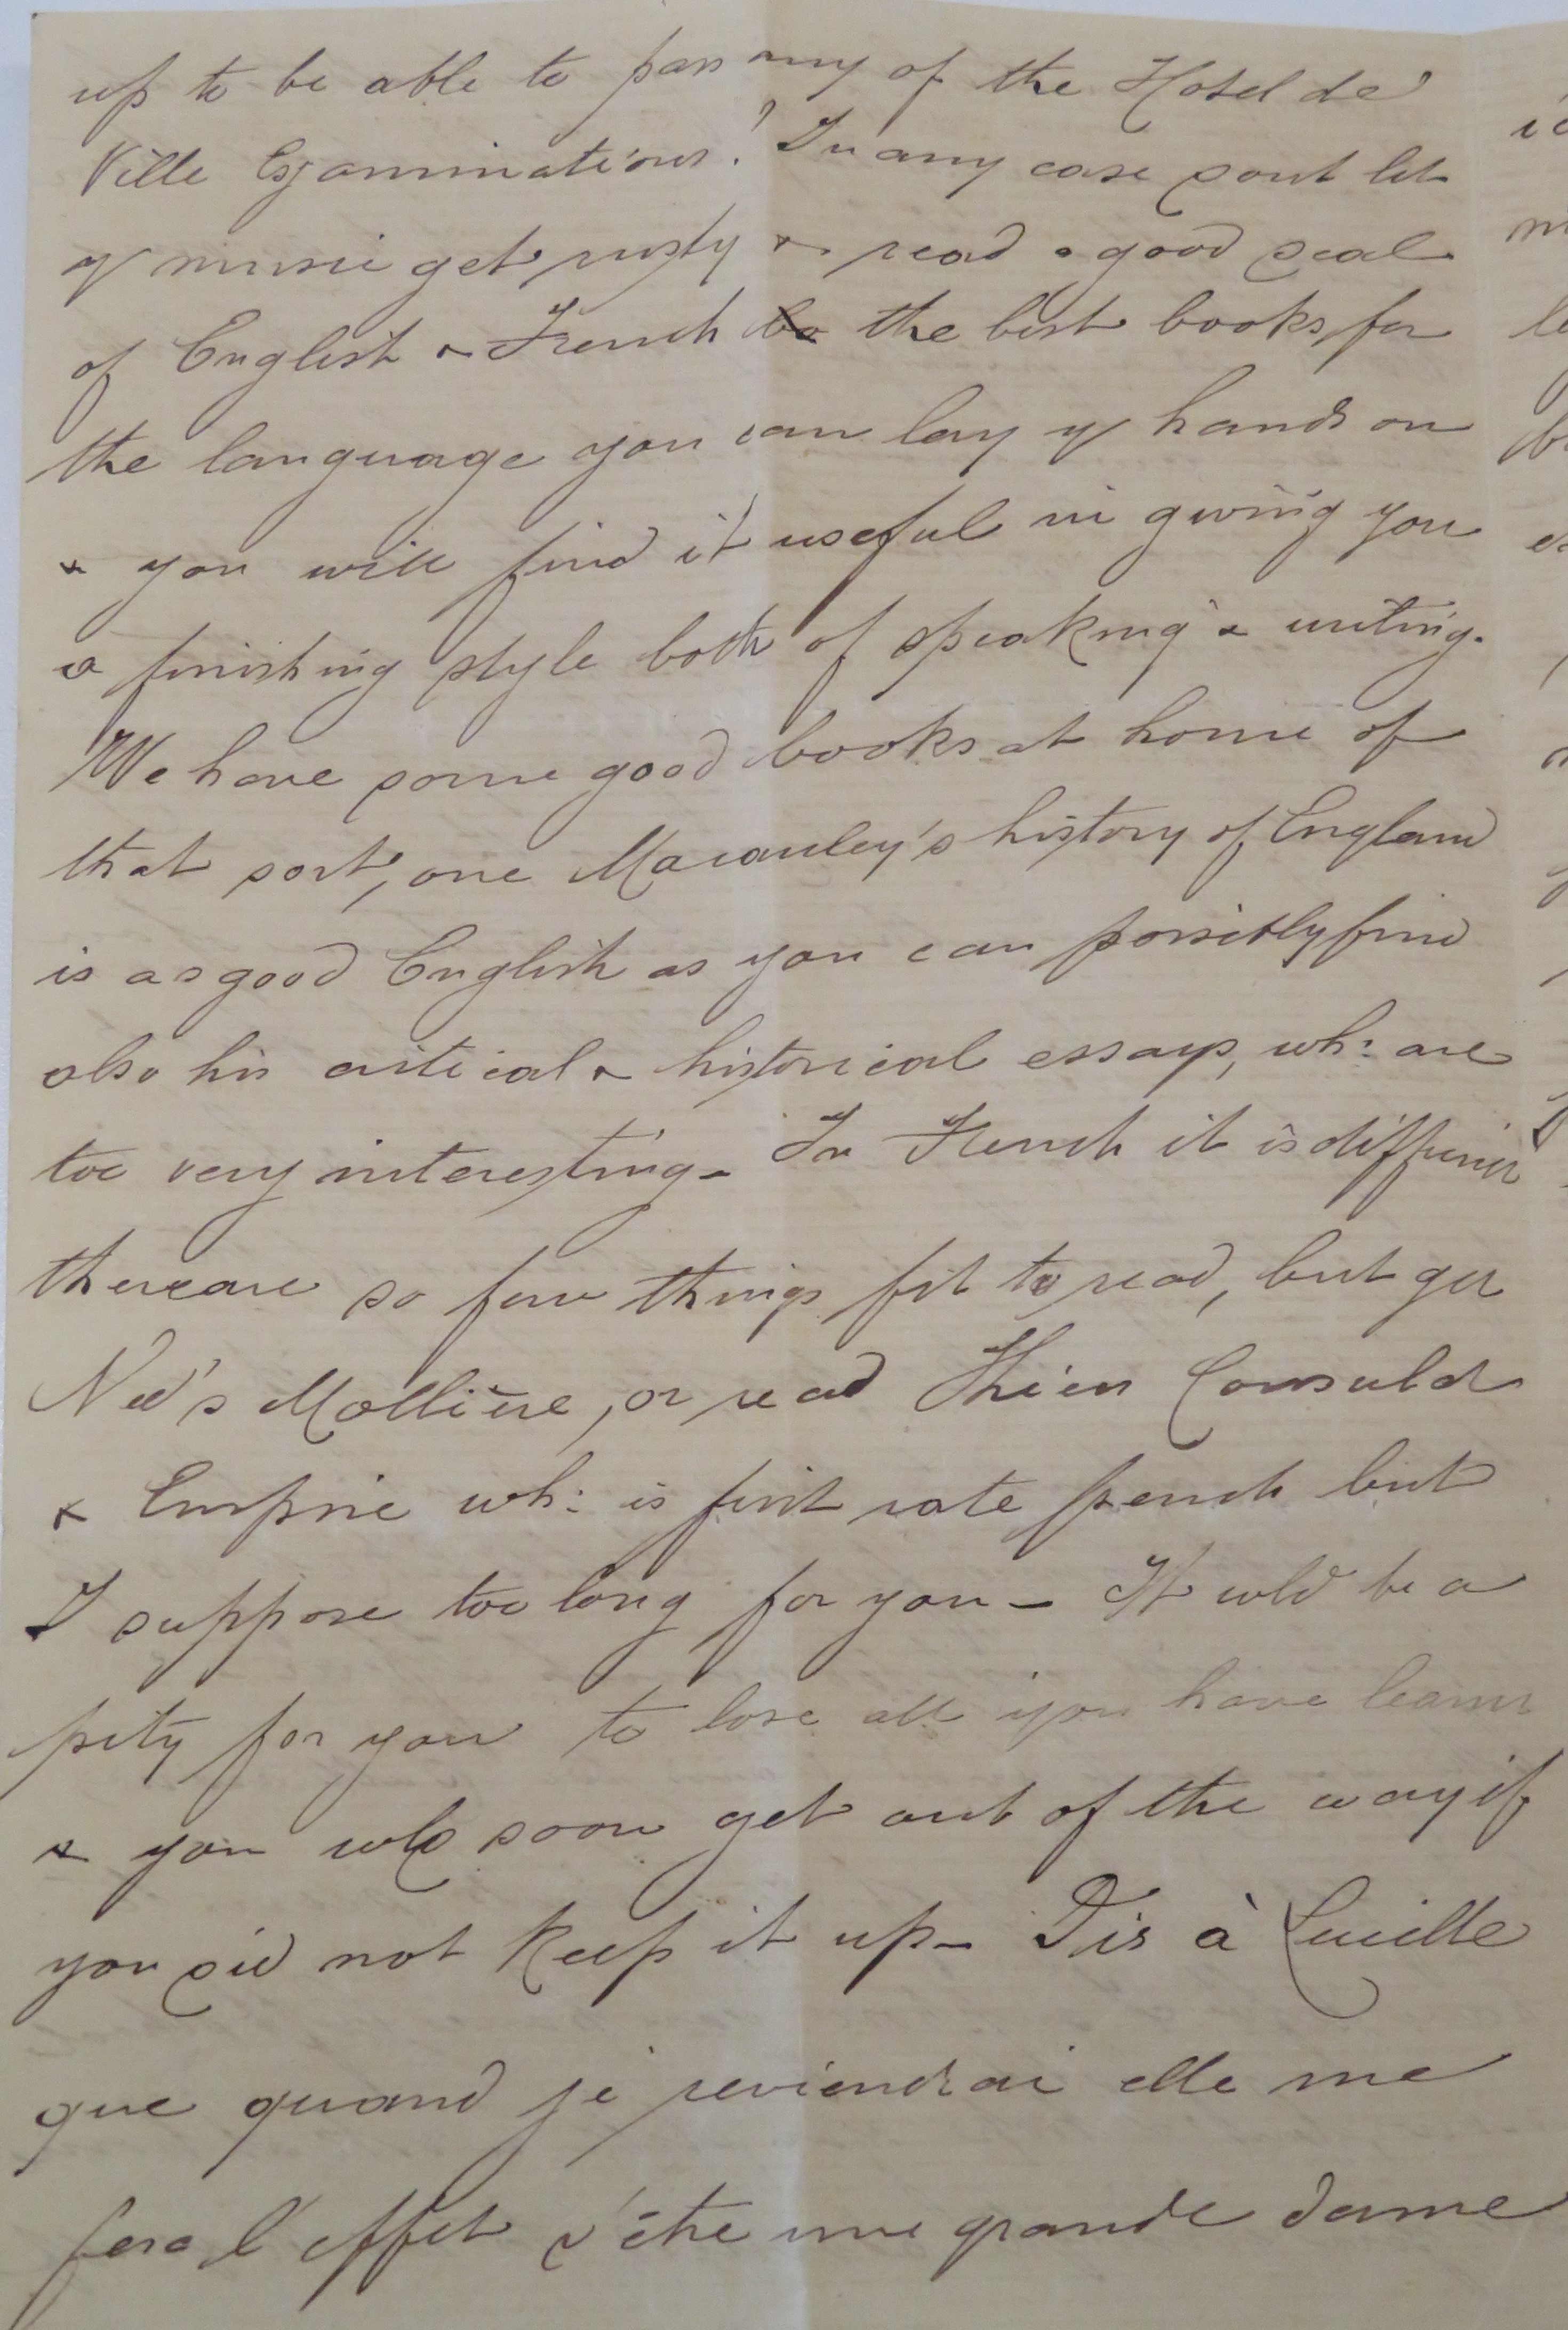 up to be able to pass any of the Hotel de
Ville Examinations? In any case dont let
yr music get rusty & read a good deal
of English & French bo the best books for
the language you can lay yr hands on
& you will find it useful in giving you
a finishing style both of speaking & writing.
We have some good books at home of
that sort, one Macauley's history of England
is as good English as you can possibly find
also his critical & historical essays, wh: are
too very interesting - In French it is different
there are so few things fit to read, but get
Ned's Mollière, or read Thiers Consulat
& Empire wh: is first rate french but
I suppose too long for you - It wld be a
pity for you to lose all you have learnt
& you wld soon get out of the way if
you did not keep it up - Dis à Lucille
que quand je reviendrai elle me
fera l'effet d'être une grande dame